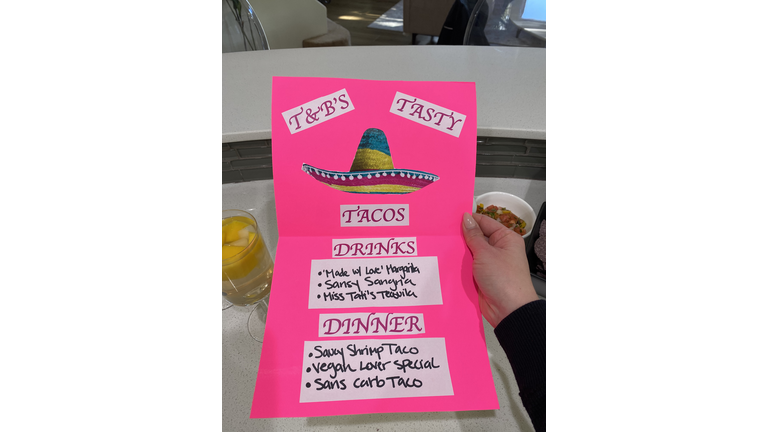 T&B'S
TASTY
TACOS
DRINKS
• 'Made w/ Love' Margarita
• Sansy Sangria
• Miss Tati's Tequila
DINNER
• Saucy Shrimp Taco
• Vegan Lover Special
• Sans Carb Taco